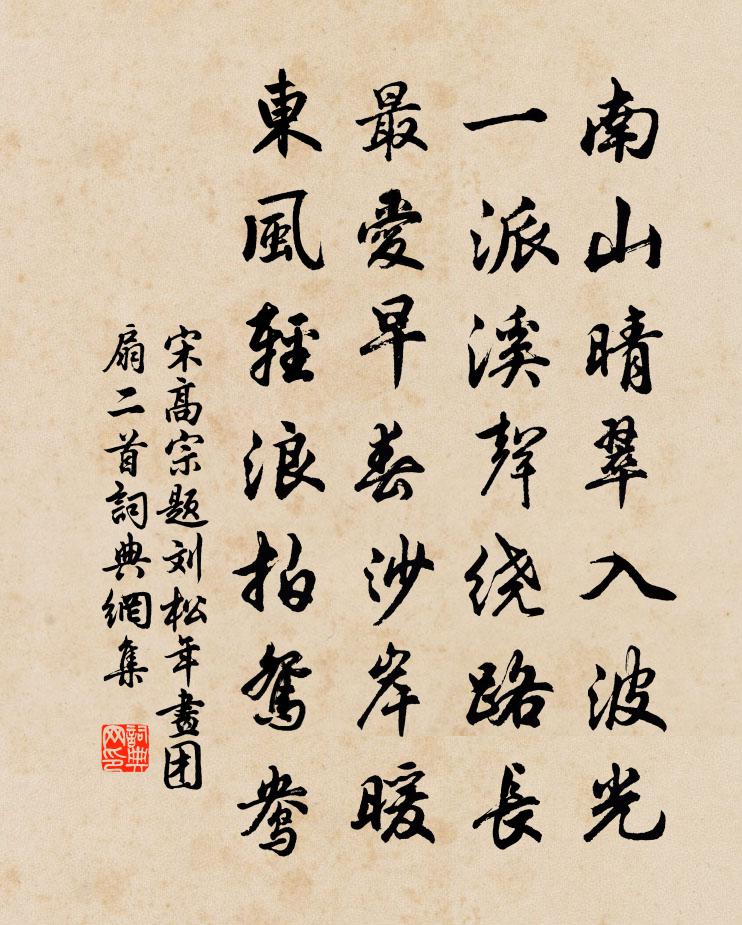 南山晴翠入波光
一派溪聲绕路長
最愛早春沙岸暖
東風輕浪拍鴛鴦
宋高宗题刘松年畫团
扇二首詞典網集
詞典网印